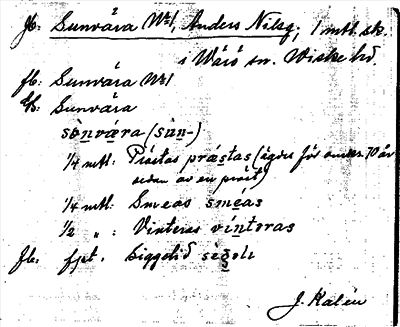 jb: Sunvära Nr1, Anders Nilsg, 1 mtl sk.
i Värö sn. Viske hd
jb: Sunvära Nr1
Sunvära
sònvära (sùn-)
1/4 mtl: Prästas prástas (ägdes för omkr. 70 år
sedan av en präst)
1/4 mtl: Smeas sméas
1/2 " : Vinteras víntoras
jb: fpt. Siggelid
J. Kalén